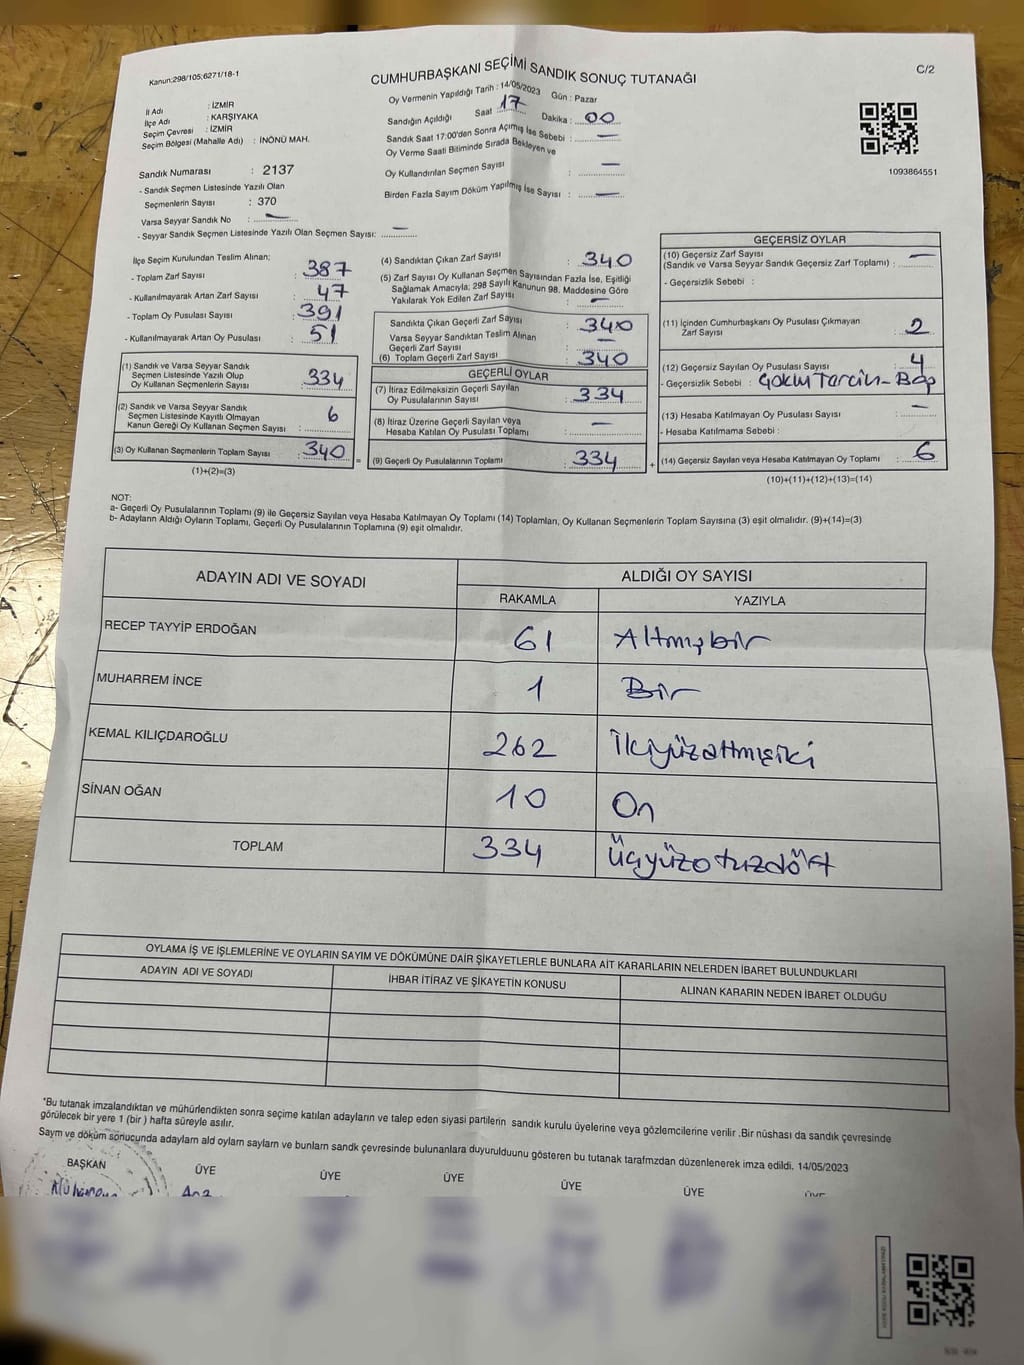 Kanun:298/105;6271/18-1
CUMHURBAŞKANI SEÇİMİ SANDIK SONUÇ TUTANAĞI
C/2
İl Adı : İZMİR
İlçe Adı : KARŞIYAKA
Seçim Çevresi : İZMİR
Seçim Bölgesi (Mahalle Adı) : İNÖNÜ MAH.
Oy Vermenin Yapıldığı Tarih : 14/05/2023 Gün : Pazar
Sandığın Açıldığı Saat 17 Dakika : 00
Sandık Saat 17:00'den Sonra Açımış İse Sebebi : —
Oy Verme Saati Bitiminde Sırada Bekleyen ve
Oy Kullandırılan Seçmen Sayısı : —
Birden Fazla Sayım Döküm Yapılmış İse Sayısı : —
1093864551
Sandık Numarası : 2137
- Sandık Seçmen Listesinde Yazılı Olan
Seçmenlerin Sayısı : 370
Varsa Seyyar Sandık No : —
- Seyyar Sandık Seçmen Listesinde Yazılı Olan Seçmen Sayısı: —
İlçe Seçim Kurulundan Teslim Alınan;
- Toplam Zarf Sayısı : 387
- Kullanılmayarak Artan Zarf Sayısı : 47
- Toplam Oy Pusulası Sayısı : 391
- Kullanılmayarak Artan Oy Pusulası : 51
(1) Sandık ve Varsa Seyyar Sandık
Seçmen Listesinde Yazılı Olup
Oy Kullanan Seçmenlerin Sayısı : 334
(2) Sandık ve Varsa Seyyar Sandık
Seçmen Listesinde Kayıtlı Olmayan
Kanun Gereği Oy Kullanan Seçmen Sayısı : 6
(3) Oy Kullanan Seçmenlerin Toplam Sayısı : 340
(1)+(2)=(3)
=
(4) Sandıktan Çıkan Zarf Sayısı : 340
(5) Zarf Sayısı Oy Kullanan Seçmen Sayısından Fazla İse, Eşitliği
Sağlamak Amacıyla; 298 Sayılı Kanunun 98. Maddesine Göre
Yakılarak Yok Edilen Zarf Sayısı : —
Sandıkta Çıkan Geçerli Zarf Sayısı : 340
Varsa Seyyar Sandıktan Teslim Alınan
Geçerli Zarf Sayısı : —
(6) Toplam Geçerli Zarf Sayısı : 340
GEÇERLİ OYLAR
(7) İtiraz Edilmeksizin Geçerli Sayılan
Oy Pusulalarının Sayısı : 334
(8) İtiraz Üzerine Geçerli Sayılan veya
Hesaba Katılan Oy Pusulası Toplamı : —
(9) Geçerli Oy Pusulalarının Toplamı : 334
+
GEÇERSİZ OYLAR
(10) Geçersiz Zarf Sayısı
(Sandık ve Varsa Seyyar Sandık Geçersiz Zarf Toplamı) : —
- Geçersizlik Sebebi :
(11) İçinden Cumhurbaşkanı Oy Pusulası Çıkmayan
Zarf Sayısı : 2
(12) Geçersiz Sayılan Oy Pusulası Sayısı : 4
- Geçersizlik Sebebi :
(13) Hesaba Katılmayan Oy Pusulası Sayısı : —
- Hesaba Katılmama Sebebi :
(14) Geçersiz Sayılan veya Hesaba Katılmayan Oy Toplamı : 6
(10)+(11)+(12)+(13)=(14)
NOT:
a- Geçerli Oy Pusulalarının Toplamı (9) ile Geçersiz Sayılan veya Hesaba Katılmayan Oy Toplamı (14) Toplamları, Oy Kullanan Seçmenlerin Toplam Sayısına (3) eşit olmalıdır. (9)+(14)=(3)
b- Adayların Aldığı Oyların Toplamı, Geçerli Oy Pusulalarının Toplamına (9) eşit olmalıdır.
ADAYIN ADI VE SOYADI ALDIĞI OY SAYISI
RAKAMLA YAZIYLA
RECEP TAYYİP ERDOĞAN 61 Altmışbir
MUHARREM İNCE 1 Bir
KEMAL KILIÇDAROĞLU 262 İkiyüzaltmışiki
SİNAN OĞAN 10 On
TOPLAM 334 Üçyüzotuzdört
OYLAMA İŞ VE İŞLEMLERİNE VE OYLARIN SAYIM VE DÖKÜMÜNE DAİR ŞİKAYETLERLE BUNLARA AİT KARARLARIN NELERDEN İBARET BULUNDUKLARI
ADAYIN ADI VE SOYADI İHBAR İTİRAZ VE ŞİKAYETİN KONUSU ALINAN KARARIN NEDEN İBARET OLDUĞU
*Bu tutanak imzalandıktan ve mühürlendikten sonra seçime katılan adayların ve talep eden siyasi partilerin sandık kurulu üyelerine veya gözlemcilerine verilir .Bir nüshası da sandık çevresinde
görülecek bir yere 1 (bir ) hafta süreyle asılır.
Sayım ve döküm sonucunda adayların ald oyların sayların ve bunların sandk çevresinde bulunanlara duyurulduunu gösteren bu tutanak tarafmzdan düzenlenerek imza edildi. 14/05/2023
BAŞKAN ÜYE ÜYE ÜYE ÜYE ÜYE ÜYE